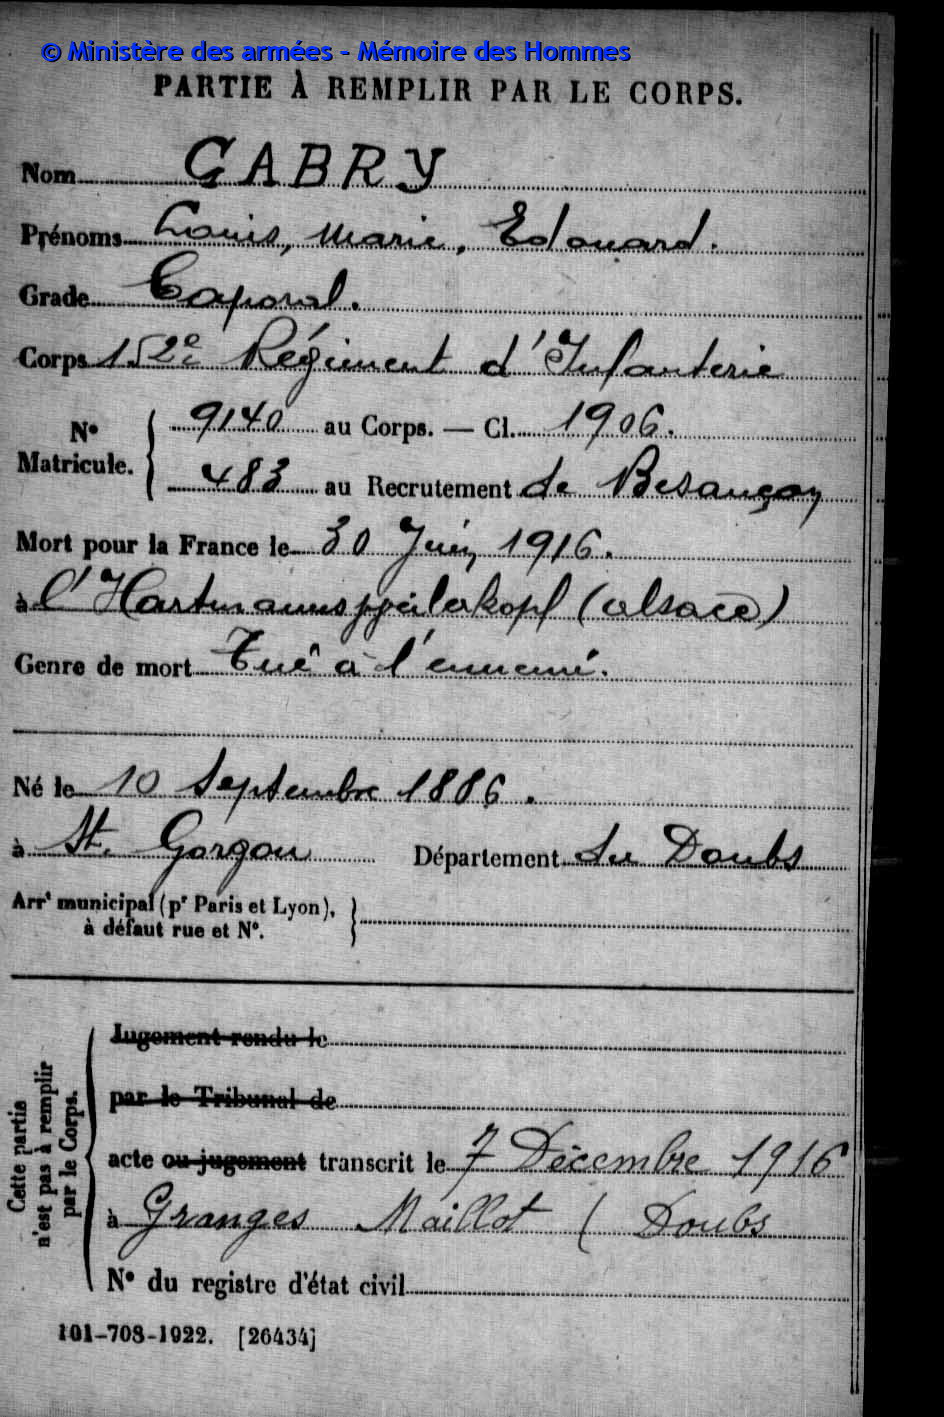 © Ministère des armées - Mémoire des Hommes
PARTIE À REMPLIR PAR LE CORPS.
Nom GABRY
Prénoms Louis, Marie, Edouard.
Grade Caporal.
Corps 152e Régiment d'Infanterie
N° Matricule. 9140 au Corps. — Cl. 1906.
483 au Recrutement de Besançon
Mort pour la France le 30 Juin 1916.
à l'Hartmannspveilerkopf (alsace)
Genre de mort Tué à l'ennemi.
Né le 10 Septembre 1886.
à St. Gorgon Département du Doubs
Arrt municipal (pr Paris et Lyon),
à défaut rue et N°.
Cette partie
n'est pas à remplir
par le Corps.
Jugement rendu le
par le Tribunal de
acte ou jugement transcrit le 7 Décembre 1916
à Granges Maillot (Doubs
N° du registre d'état civil
101-708-1922. [26434]